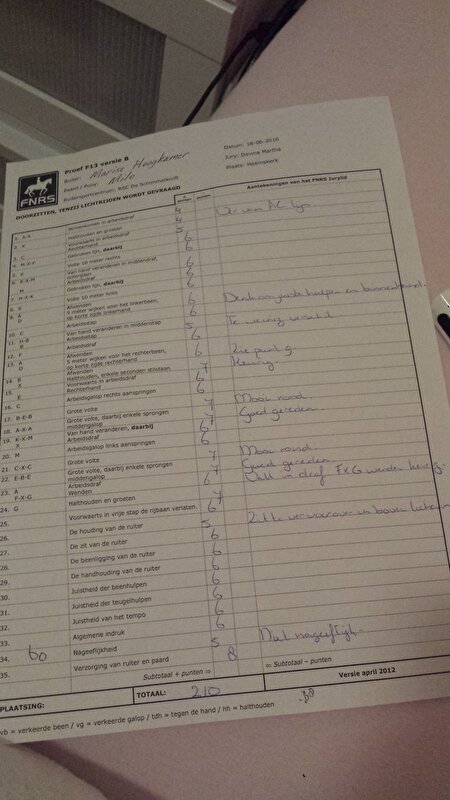 FNRS
Proef F13 versie B
Ruiter: Marise Hoogkamer
Paard / Pony: Milo
Ruitersportcentrum: RSC De Schimmelkroft
Datum: 18-06-2016
Jury: Davina Martha
Plaats: Heemskerk
DOORZITTEN, TENZIJ LICHTRIJDEN WORDT GEVRAAGD
Aantekeningen van het FNRS Jurylid
1. A-X Binnenkomen in arbeidsdraf 4
X Halthouden en groeten 4
Voorwaarts in arbeidsdraf
3. C Rechterhand 5
4. M-X-F Gebroken lijn, daarbij 6
5. X Volte 10 meter rechts 6
6. K-X-M Van hand veranderen in middendraf,
lichtrijden
M Arbeidsdraf
7. H-X-K Gebroken lijn, daarbij
8. X Volte 10 meter links
9. A Afwenden
5 meter wijken voor het linkerbeen,
op korte zijde linkerhand
10. C Arbeidsstap
11. H-B Van hand veranderen in middenstap 5 Te weinig verschil
B Arbeidsstap
12. F Arbeidsdraf
13. A Afwenden
5 meter wijken voor het rechterbeen,
op korte zijde rechterhand
Zie punt 9.
Keurig.
14. B Afwenden 7
X Halthouden, enkele seconden stilstaan
X Voorwaarts in arbeidsdraf
E Rechterhand
Arbeidsgalop rechts aanspringen
16. C
17. B-E-B Grote volte 7 Mooi rond
18. A-X-A Grote volte, daarbij enkele sprongen
middengalop 7 Goed gereden
19. K-X-M Van hand veranderen, daarbij
X Arbeidsdraf 6
20. M Arbeidsgalop links aanspringen
21. C-X-C Grote volte 7 Mooi rond
22. E-B-E Grote volte, daarbij enkele sprongen
middengalop 7 Goed gereden
23. A Arbeidsdraf 6
F-X-G Wenden
24. G Halthouden en groeten 7
25. Voorwaarts in vrije stap de rijbaan verlaten. 6
26. De houding van de ruiter 5
De zit van de ruiter 6
De beenligging van de ruiter 6
De handhouding van de ruiter 6
Juistheid der beenhulpen 6
31. Juistheid der teugelhulpen 6
32. Juistheid van het tempo 6
33. Algemene indruk 6
34. 60 Nageeflijkheid 5 Nat nageeflijk.
35. Verzorging van ruiter en paard 8
Subtotaal + punten ⇨
⇦ Subtotaal – punten
PLAATSING:
TOTAAL: 210
Versie april 2012
vb = verkeerde been / vg = verkeerde galop / tdh = tegen de hand / hh = halthouden